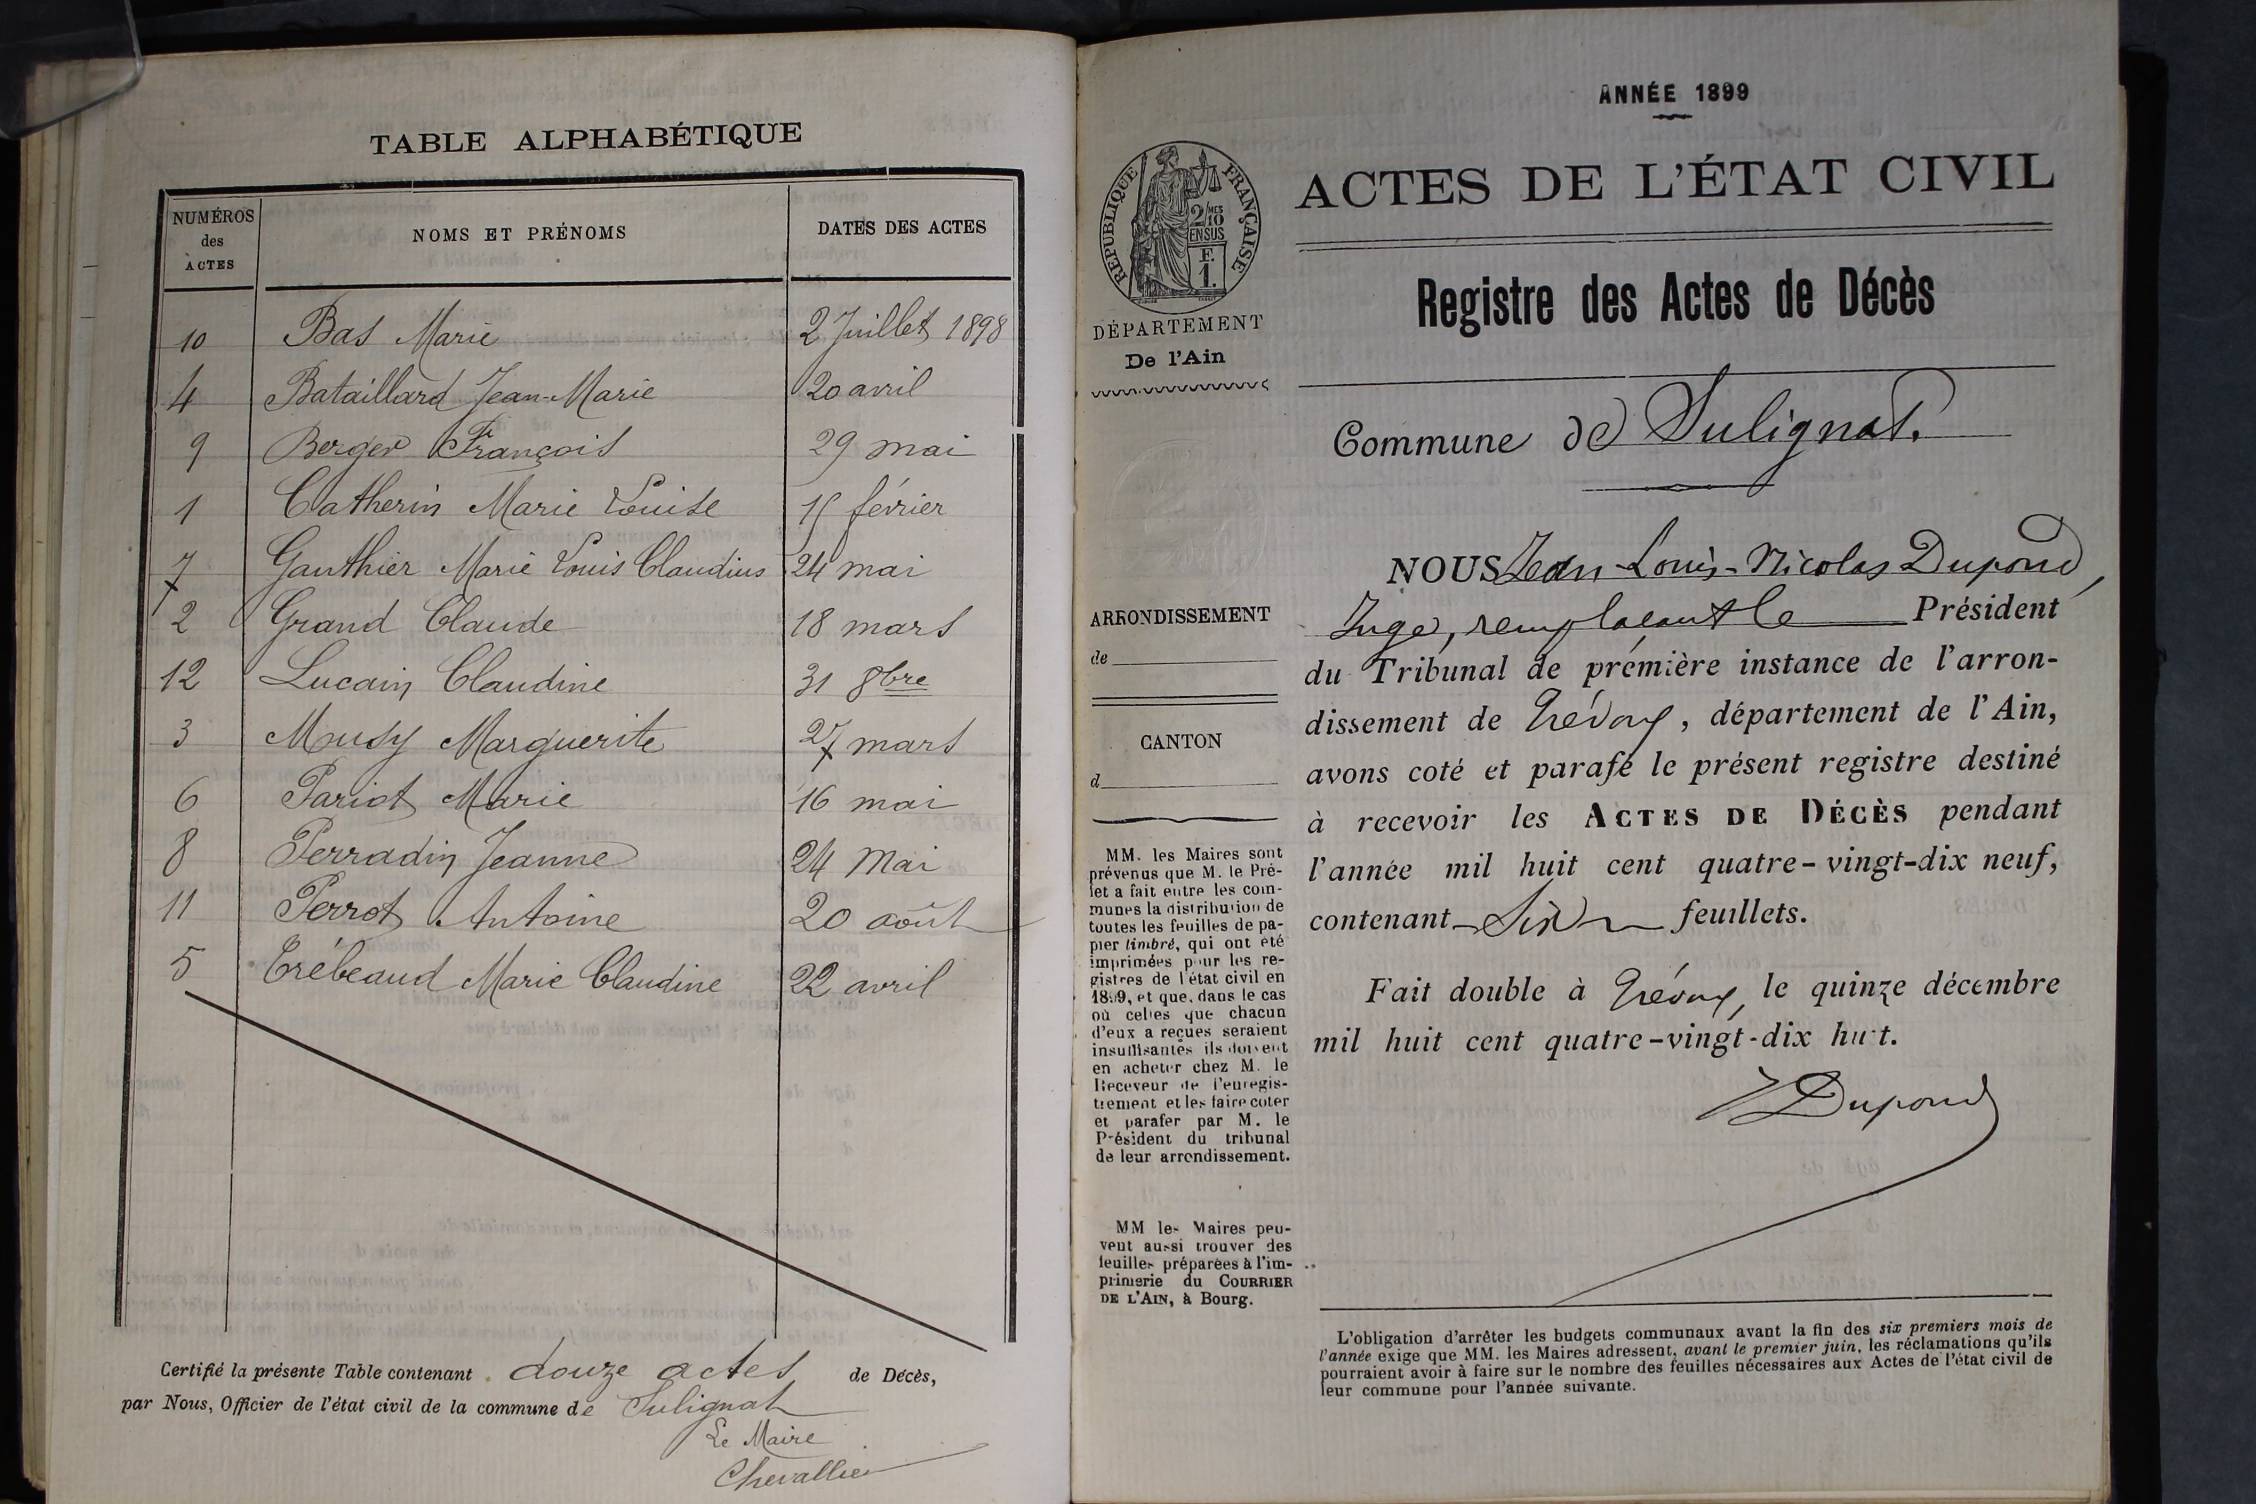 TABLE ALPHABÉTIQUE
NUMÉROS des ACTES NOMS ET PRÉNOMS DATES DES ACTES
10 Bas Marie 2 Juillet 1898
4 Bataillard Jean-Marie 20 avril
9 Berger François 29 mai
1 Catherin Marie Louise 15 février
7 Gauthier Marie Louis Claudius 24 mai
2 Grand Claude 18 mars
12 Lucain Claudine 31 8bre
3 Musy Marguerite 27 mars
6 Pariot Marie 16 mai
8 Perradin Jeanne 24 Mai
11 Perrot Antoine 20 août
5 Trébeaud Marie Claudine 22 avril
Certifié la présente Table contenant douze actes de Décès,
par Nous, Officier de l'état civil de la commune de Sulignat
Le Maire
Chevallier
ANNÉE 1899
ACTES DE L'ÉTAT CIVIL
RÉPUBLIQUE FRANÇAISE
2/10 MES
EN SUS
F.
1.
DÉPARTEMENT
De l'Ain
Registre des Actes de Décès
Commune de Sulignat.
ARRONDISSEMENT
de
CANTON
d
MM. les Maires sont
prévenus que M. le Pré-
fet a fait entre les com-
munes la distribution de
toutes les feuilles de pa-
pier timbré, qui ont été
imprimées pour les re-
gistres de l'état civil en
1899, et que, dans le cas
où celles que chacun
d'eux a reçues seraient
insuffisantes ils doivent
en acheter chez M. le
Receveur de l'enregis-
trement et les faire coter
et parafer par M. le
Président du tribunal
de leur arrondissement.
MM les Maires peu-
vent aussi trouver des
feuilles préparées à l'im-
primerie du COURRIER
DE L'AIN, à Bourg.
NOUS Jean-Louis-Nicolas Dupond,
Juge, remplaçant le Président
du Tribunal de prémière instance de l'arron-
dissement de Trévoux, département de l'Ain,
avons coté et parafé le présent registre destiné
à recevoir les ACTES DE DÉCÈS pendant
l'année mil huit cent quatre-vingt-dix neuf,
contenant Six feuillets.
Fait double à Trévoux, le quinze décembre
mil huit cent quatre-vingt-dix huit.
Dupond
L'obligation d'arrêter les budgets communaux avant la fin des six premiers mois de
l'année exige que MM. les Maires adressent, avant le premier juin, les réclamations qu'ils
pourraient avoir à faire sur le nombre des feuilles nécessaires aux Actes de l'état civil de
leur commune pour l'année suivante.